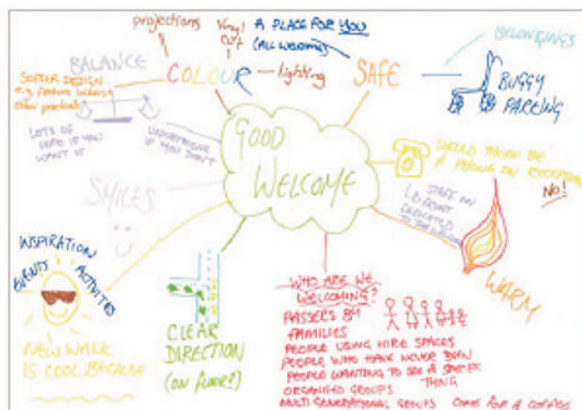 projections
Very!
A PLACE FOR YOU
(ALL WELCOME)
BALANCE
COLOUR
lighting
SAFE
BELONGINGS
BUGGY
PARKING
SOFTER DESIGN
e.g. feature
LOTS OF
INFO IF YOU
WANT IT
IF YOU DON'T
GOOD
WELCOME
SHOULD THERE BE
A PHONE ON RECEPTION
NO!
SMILES
STAFF ON
FRONT
DEDICATED
TO THE
WARM
INSPIRATION
EVENTS
ACTIVITIES
NEW WALK
IS COOL BECAUSE
CLEAR
DIRECTION
(ON FLOOR?)
WHO ARE WE
WELCOMING?
PASSERS BY
FAMILIES
PEOPLE USING HIRE SPACES
PEOPLE WHO HAVE NEVER BEEN
PEOPLE WANTING TO SEE A SPECIFIC
THING
ORGANISED GROUPS
MULTI GENERATIONAL GROUPS COME FOR A COFFEE